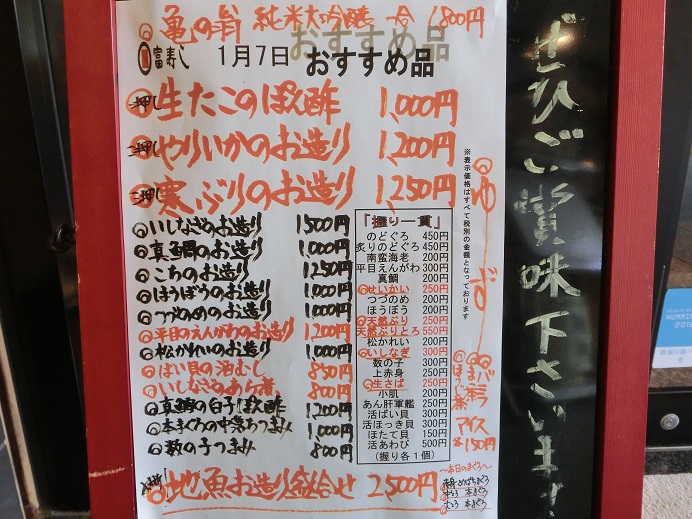 亀の翁 純米大吟醸 一合 1,800円
富寿し 1月7日 おすすめ品
一押し 生たこのぽん酢 1,000円
二押し やりいかのお造り 1,200円
三押し 寒ぶりのお造り 1,250円
いしなぎのお造り 1,500円
真鯛のお造り 1,000円
こちのお造り 1,250円
ほうぼうのお造り 1,000円
つづのめのお造り 1,000円
平目のえんがわのお造り 1,200円
松かれいのお造り 1,000円
ばい貝の酒むし 850円
いしなぎのあら煮 800円
真鱈の白子ぽん酢 1,200円
本まぐろの中落ちつまみ 1,000円
数の子つまみ 800円
地魚お造り盛合せ 2,500円
「握り一貫」
のどぐろ 450円
炙りのどぐろ 450円
南蛮海老 200円
平目えんがわ 300円
真鯛 200円
せいかい 250円
つづのめ 200円
ほうぼう 200円
天然ぶり 250円
天然ぶりとろ 550円
松かれい 200円
いしなぎ 300円
数の子 300円
上赤身 250円
生さば 250円
小肌 200円
あん肝軍艦 250円
活ばい貝 300円
活ほっき貝 300円
ほたて貝 150円
活あわび 500円
(握り各1個)
※表示価格はすべて税別の金額となっております
ゆず
バニラ
まっ茶
ほうじ茶
アイス
各150円
~本日のまぐろ~
本まぐろ
本まぐろ
ぜひご賞味下さいませ